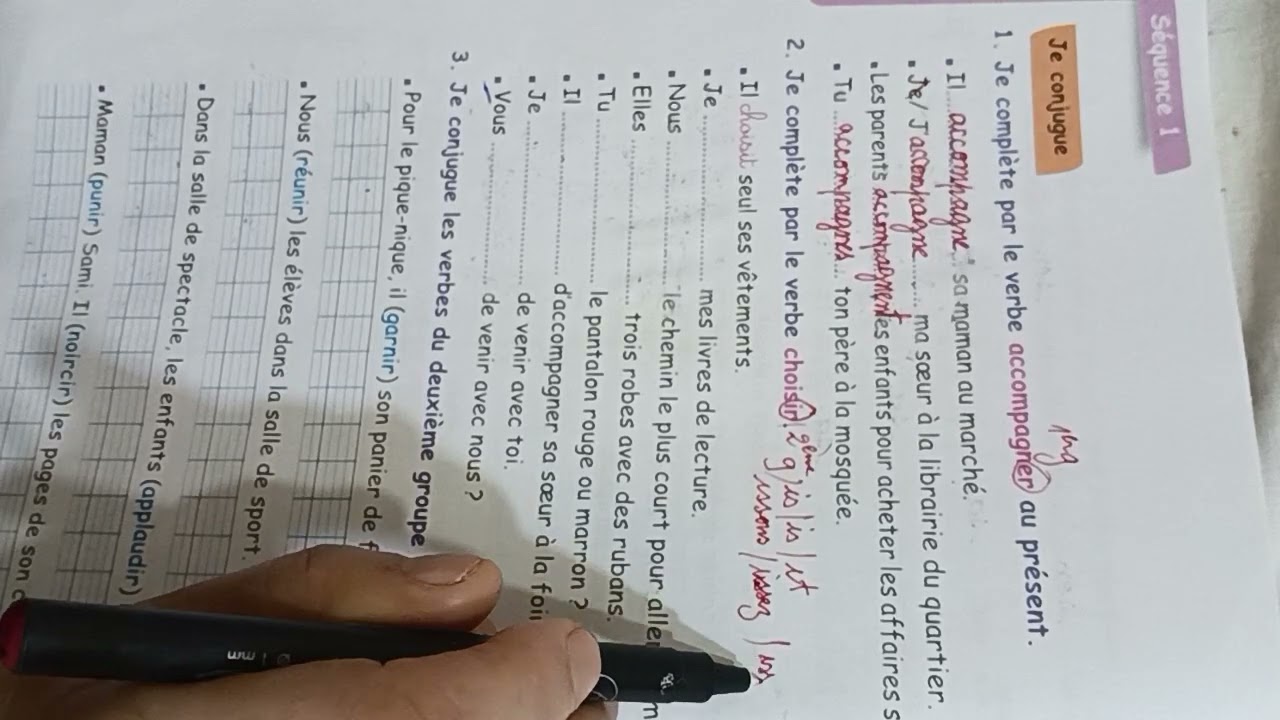 Séquence 1
Je conjugue
1. Je complète par le verbe accompagner au présent.
1 g
• Il accompagne sa maman au marché.
• Je/J'accompagne ma sœur à la librairie du quartier.
• Les parents accompagnent les enfants pour acheter les affaires s
• Tu accompagnes ton père à la mosquée.
2. Je complète par le verbe choisir. 2ème g is / is / it
issons / issez / iss
• Il choisit seul ses vêtements.
• Je ........ mes livres de lecture.
• Nous ........ le chemin le plus court pour aller
• Elles ........ trois robes avec des rubans.
• Tu ........ le pantalon rouge ou marron ?
• Il ........ d'accompagner sa sœur à la foi
• Je ........ de venir avec toi.
• Vous ........ de venir avec nous ?
3. Je conjugue les verbes du deuxième groupe
• Pour le pique-nique, il (garnir) son panier de f
• Nous (réunir) les élèves dans la salle de sport.
• Dans la salle de spectacle, les enfants (applaudir)
• Maman (punir) Sami. Il (noircir) les pages de son c